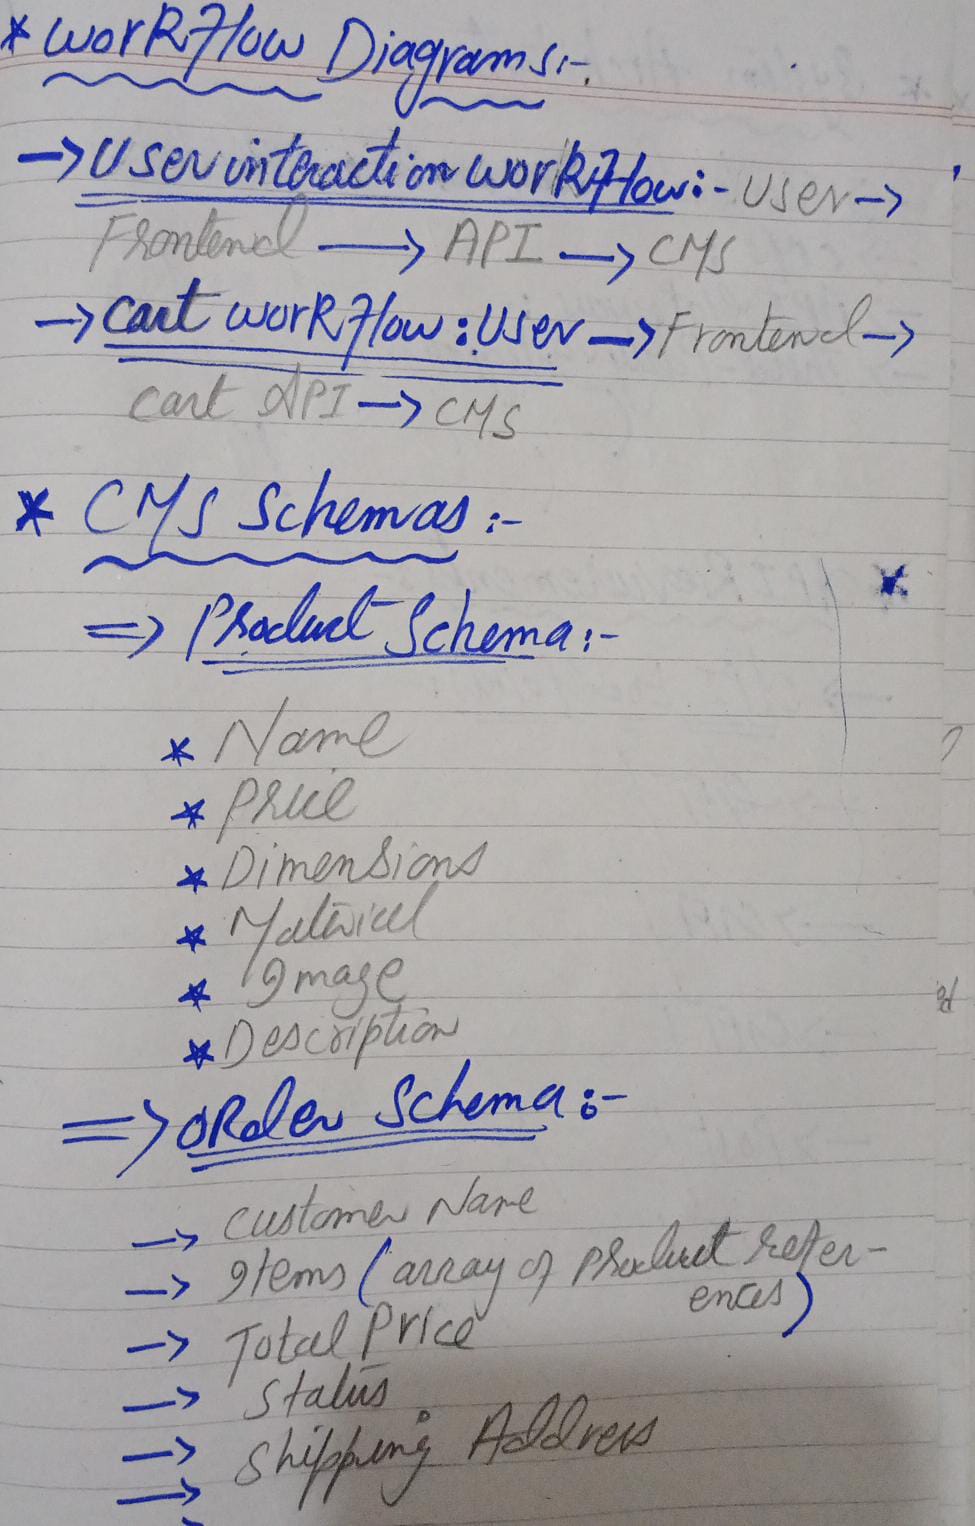 * WorkFlow Diagrams:-
→ User interaction WorkFlow:- User →
Frontend → API → CMS
→ Cart WorkFlow: User → Frontend →
Cart API → CMS
* CMS Schemas:-
⇒ Product Schema:-
* Name
* Price
* Dimensions
* Material
* Image
* Description
⇒ Order Schema:-
→ Customer Name
→ Items (array of Product refer-
ences)
→ Total Price
→ Status
→ Shipping Address
→